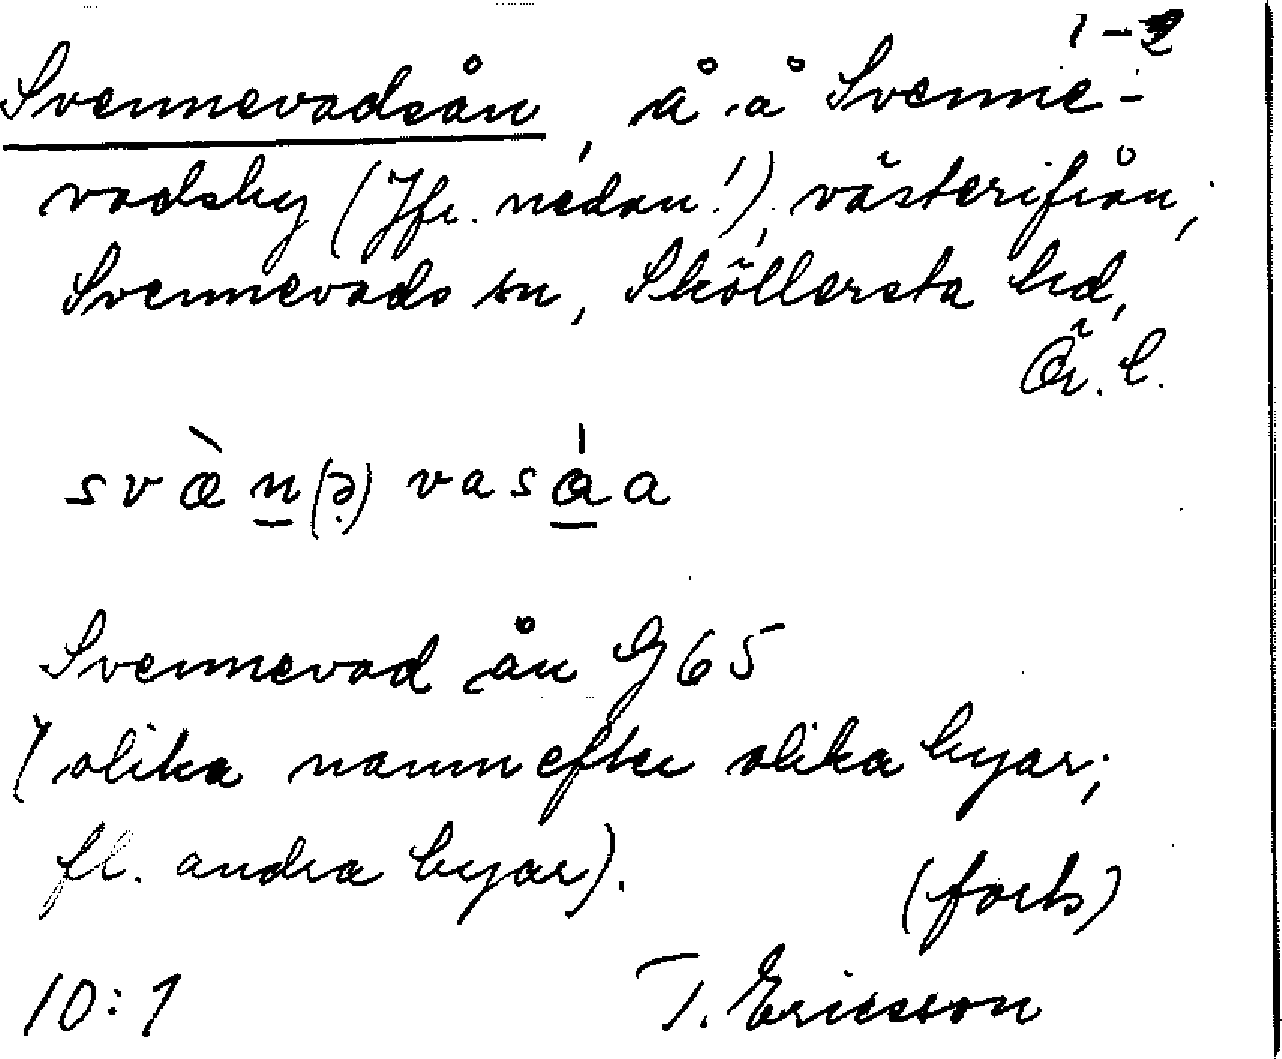 1-2
Svennevadsån, å å Svenne-
vadsby (Jfr. nedan!), västerifrån;
Svennevads sn, Sköllersta hd,
Ör. l.
svæ̀n(ə)vasá̱a
Svennevad ån G 65
(olika namn efter olika byar;
fl. andra byar).
(forts)
10:1 T. Ericsson